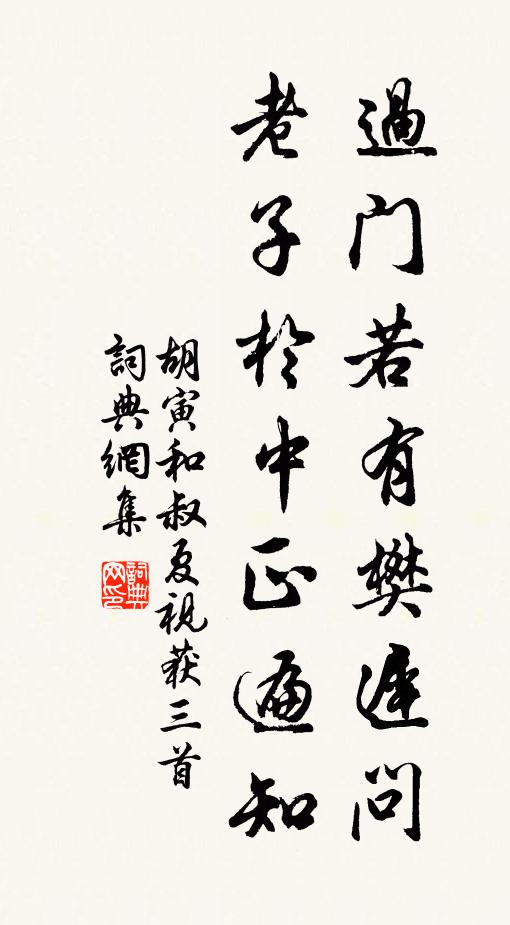 過門若有樊遲問
老子於中正遍知
胡寅和叔夏視获三首
詞典網集
詞典网印